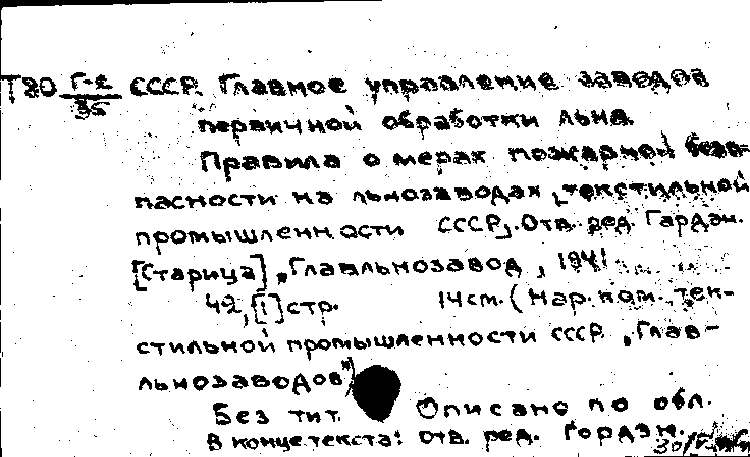 Т80 Г-2/35 СССР. Главное управление заводов
первичной обработки льна.
Правила о мерах пожарной безо-
пасности на льнозаводах [текстильной
промышленности СССР]. Отв. ред. Гардан.
[Старица], "Главльнозавод", 1941
42, [1] стр. 14 см. (Нар. ком. тек-
стильной промышленности СССР, "Глав-
льнозаводов")
Без тит. Описано по обл.
В конце текста: отв. ред. Гордан.